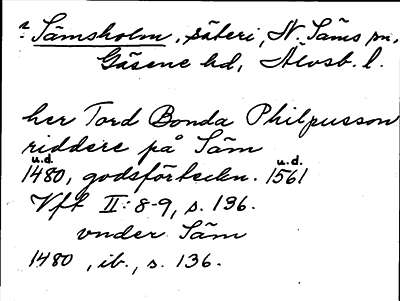 ? Sämsholm, säteri, N. Säms sn,
Gäsene hd, Älvsb. l.
her Tord Bonda Philpusson
riddere på Säm
u.d. u.d.
1480, godsförteckn. 1561
Vft II:8-9, s. 136.
vnder Säm
1480, ib., s. 136.